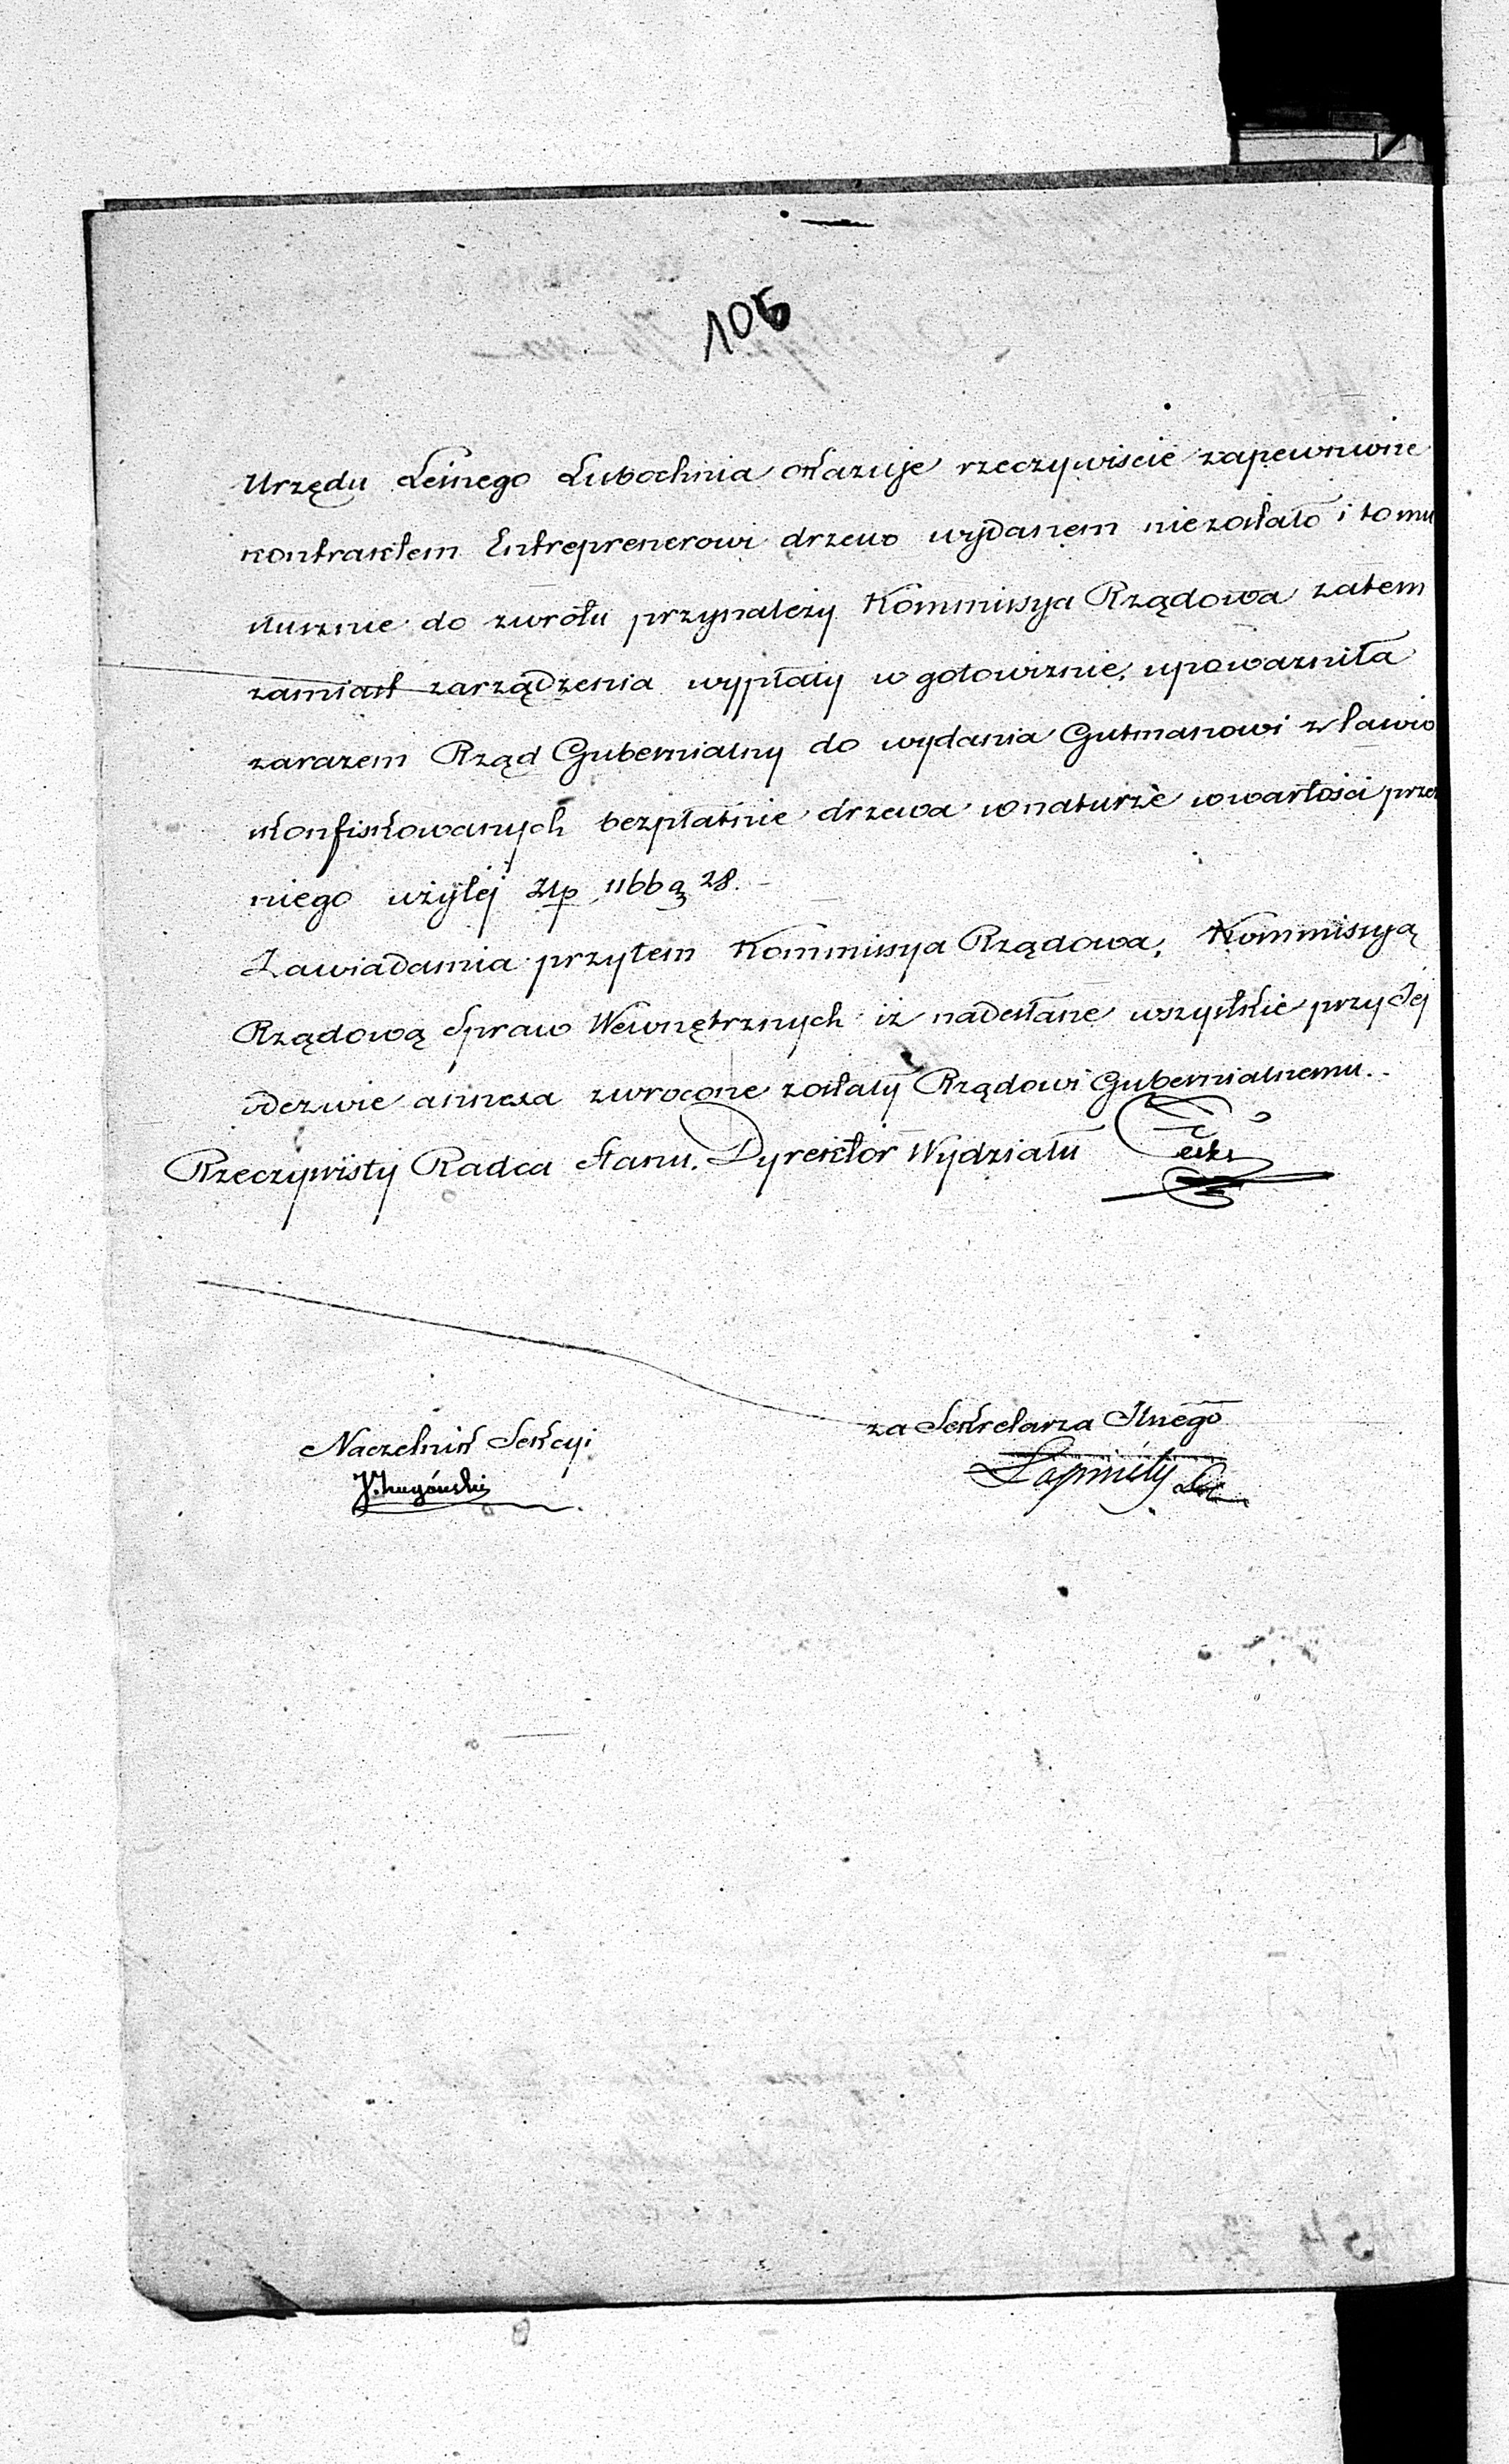 106
Urzędu Leśnego Lubochnia okazuje rzeczywiście zapewnione
kontraktem Entreprenerowi drzewo wydanem niezostało i to mu
słusznie do zwrotu przynależy Kommissya Rządowa zatem
zamiast zarządzenia wypłaty w gotowiznie, upoważniła
zarazem Rząd Gubernialny do wydania Gutmanowi z ławic
skonfiskowanych bezpłatnie drzewa w naturze w wartości przez
niego użytej Złp 1166 g 28.
Zawiadamia przytem Kommissya Rządowa, Kommissyą
Rządową Spraw Wewnętrznych iż nadesłane wszystkie przy Jej
odezwie annexa zwrocone zostały Rządowi Gubernialnemu.
Rzeczywisty Radca Stanu. Dyrektor Wydziału
Naczelnik Sekcyi
za Sekretarza Jlnego